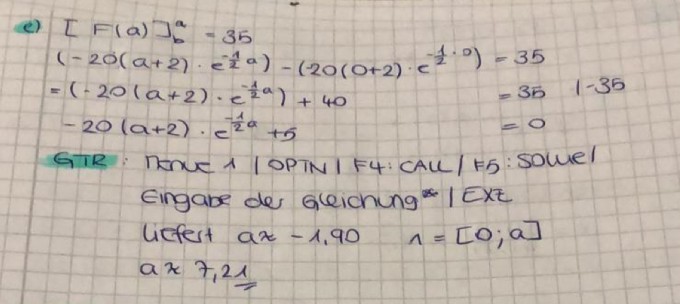 e) [F(a)]ₐᵇ = 35
(-20(a+2) · e^{-1/2 a}) - (-20(0+2) · e^{-1/2 · 0}) = 35
= (-20(a+2) · e^{-1/2 a}) + 40 = 35 | -35
-20(a+2) · e^{-1/2 a} + 5 = 0
GTR: Menue 1 | OPTN | F4: CALL | F5: SOLVE |
Eingabe der Gleichung | EXE
liefert a ≈ -1,90 1 = [0; a]
a ≈ 7,21